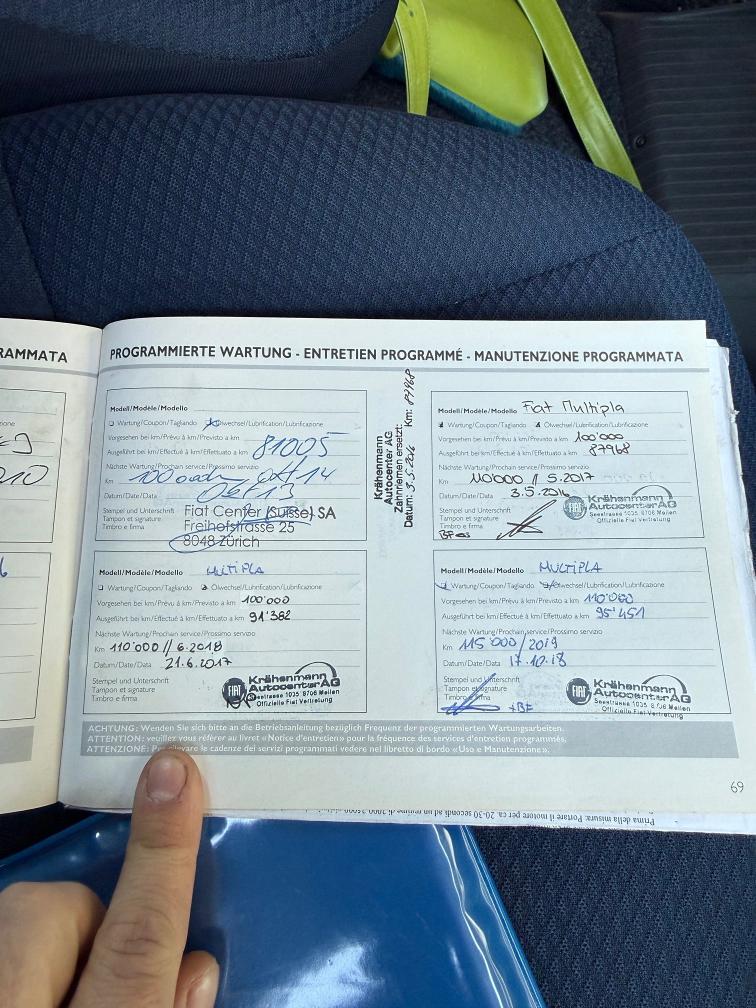 RAMMATA
PROGRAMMIERTE WARTUNG - ENTRETIEN PROGRAMMÉ - MANUTENZIONE PROGRAMMATA
Modell/Modèle/Modello
Wartung/Coupon/Tagliando Ölwechsel/Lubrification/Lubrificazione
Vorgesehen bei km/Prévu à km/Previsto a km
Ausgeführt bei km/Effectué à km/Effettuato a km 81005
Nächste Wartung/Prochain service/Prossimo servizio
Km
Datum/Date/Data 06/13
Stempel und Unterschrift
Tampon et signature
Timbro e firma
Fiat Center (Suisse) SA
Freihofstrasse 25
8048 Zürich
Krähenmann
Autocenter AG
Zahnriemen ersetzt:
Datum: 3.5.2016 Km: 87968
Modell/Modèle/Modello Fiat Multipla
Wartung/Coupon/Tagliando Ölwechsel/Lubrification/Lubrificazione
Vorgesehen bei km/Prévu à km/Previsto a km 100'000
Ausgeführt bei km/Effectué à km/Effettuato a km 87968
Nächste Wartung/Prochain service/Prossimo servizio
Km 110'000 // 5.2017
Datum/Date/Data 3.5.2016
Stempel und Unterschrift
Tampon et signature
Timbro e firma
FIAT Krähenmann
Autocenter AG
Seestrasse 1035, 8706 Meilen
Offizielle Fiat Vertretung
Modell/Modèle/Modello MULTIPLA
Wartung/Coupon/Tagliando Ölwechsel/Lubrification/Lubrificazione
Vorgesehen bei km/Prévu à km/Previsto a km 100'000
Ausgeführt bei km/Effectué à km/Effettuato a km 91'382
Nächste Wartung/Prochain service/Prossimo servizio
Km 110'000 // 6.2018
Datum/Date/Data 21.6.2017
Stempel und Unterschrift
Tampon et signature
Timbro e firma
FIAT Krähenmann
Autocenter AG
Seestrasse 1035, 8706 Meilen
Offizielle Fiat Vertretung
Modell/Modèle/Modello MULTIPLA
Wartung/Coupon/Tagliando Ölwechsel/Lubrification/Lubrificazione
Vorgesehen bei km/Prévu à km/Previsto a km 110'000
Ausgeführt bei km/Effectué à km/Effettuato a km 95'451
Nächste Wartung/Prochain service/Prossimo servizio
Km 115'000/2019
Datum/Date/Data 17.10.18
Stempel und Unterschrift
Tampon et signature
Timbro e firma
+BF
FIAT Krähenmann
Autocenter AG
Seestrasse 1035, 8706 Meilen
Offizielle Fiat Vertretung
ACHTUNG: Wenden Sie sich bitte an die Betriebsanleitung bezüglich Frequenz der programmierten Wartungsarbeiten.
ATTENTION: veuillez vous référer au livret «Notice d'entretien» pour la fréquence des services d'entretien programmés.
ATTENZIONE: Per rilevare le cadenze dei servizi programmati vedere nel libretto di bordo «Uso e Manutenzione».
69
Prima della misura: Portare il motore per ca. 20-30 secondi ad un regime di